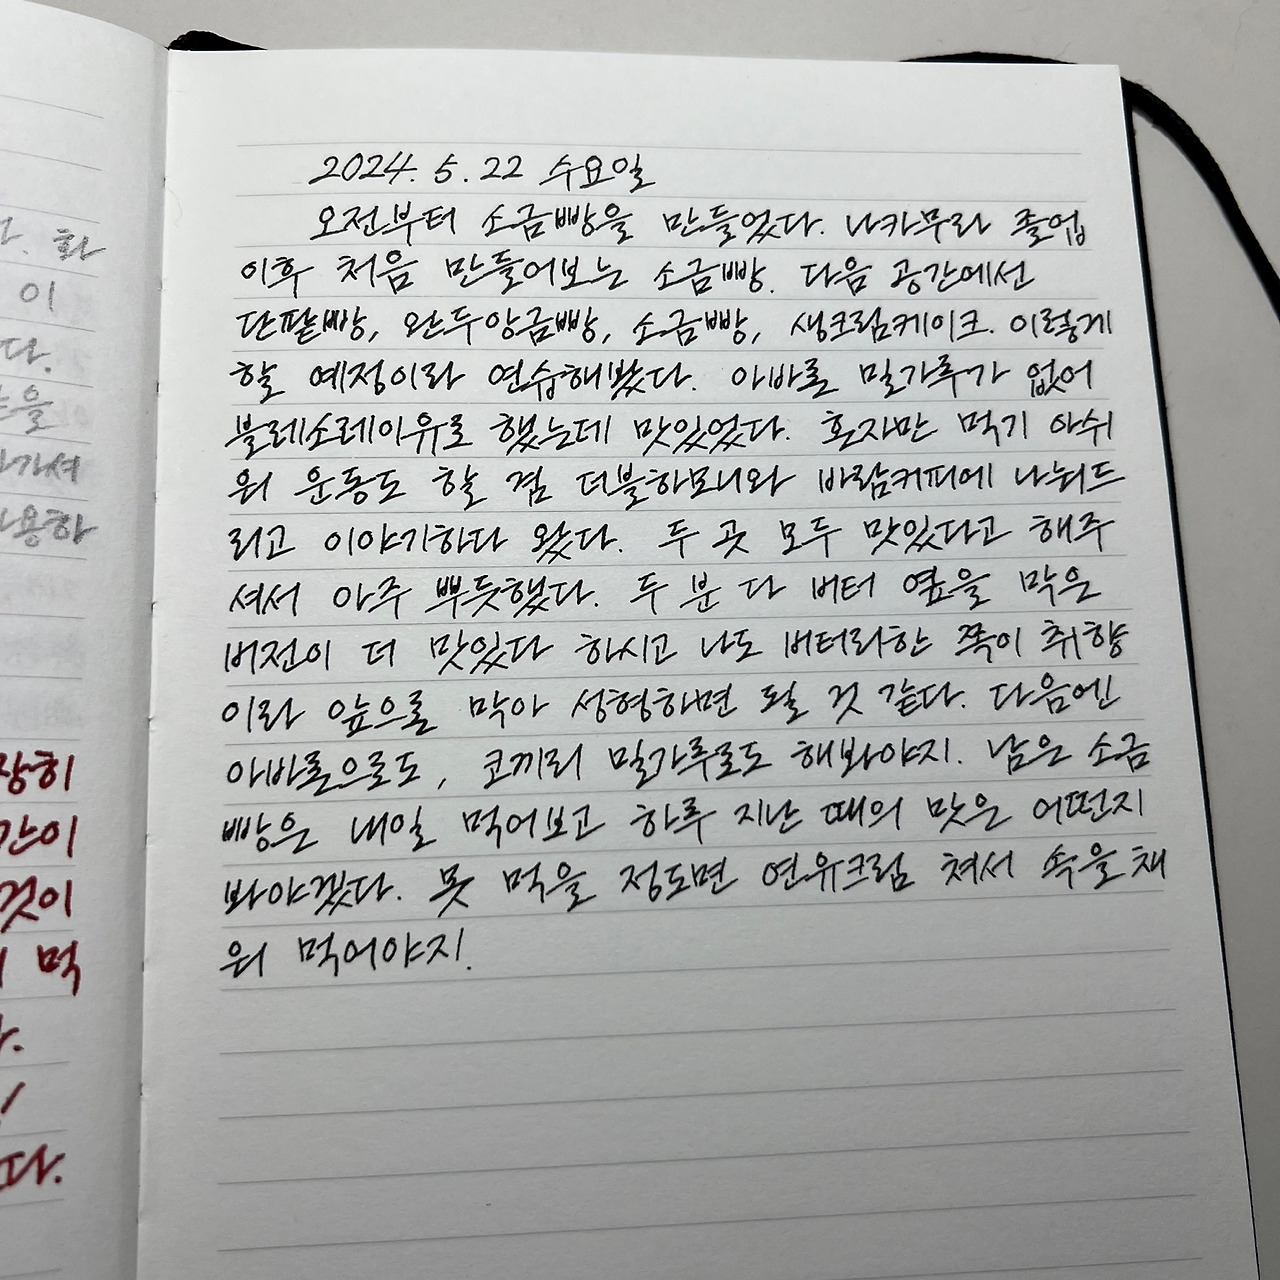 2024. 5. 22 수요일
오전부터 소금빵을 만들었다. 나카무라 졸업
이후 처음 만들어보는 소금빵. 다음 공간에선
단팥빵, 완두앙금빵, 소금빵, 생크림케이크. 이렇게
할 예정이라 연습해봤다. 아바론 밀가루가 없어
블레소레이유로 했는데 맛있었다. 혼자만 먹기 아쉬
워 운동도 할 겸 더블하모니와 바람커피에 나눠드
리고 이야기하다 왔다. 두 곳 모두 맛있다고 해주
셔서 아주 뿌듯했다. 두 분 다 버터 옆을 막은
버전이 더 맛있다 하시고 나도 버터리한 쪽이 취향
이라 앞으론 막아 성형하면 될 것 같다. 다음엔
아바론으로도, 코끼리 밀가루로도 해봐야지. 남은 소금
빵은 내일 먹어보고 하루 지난 때의 맛은 어떤지
봐야겠다. 못 먹을 정도면 연유크림 쳐서 속을 채
워 먹어야지.
화
이
다.
을
가셔
사용하
장히
간이
것이
먹
다.